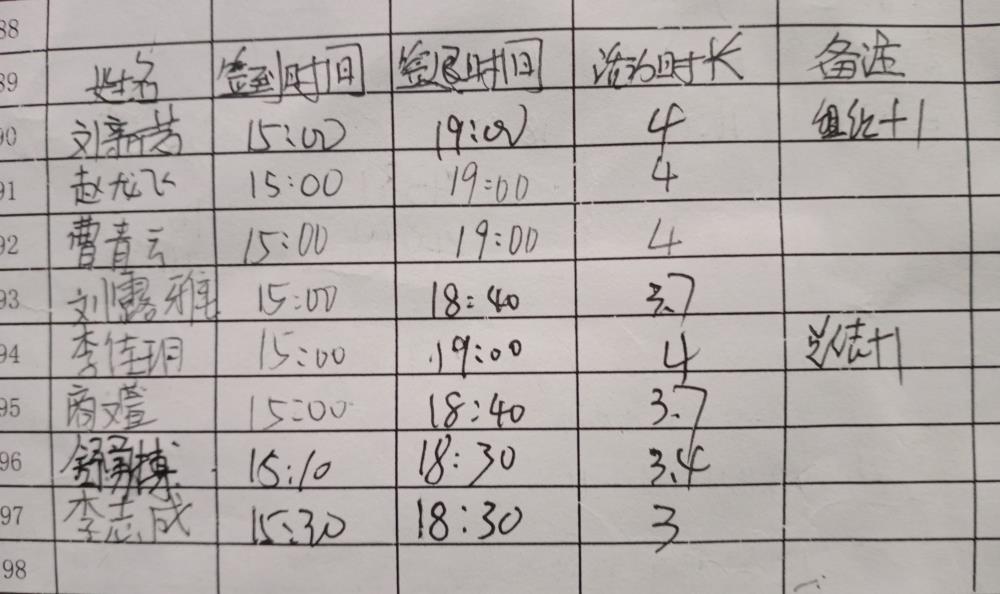 88
89 姓名 签到时间 签退时间 活动时长 备注
90 刘新芳 15:00 19:00 4 组织+1
91 赵龙飞 15:00 19:00 4
92 曹青云 15:00 19:00 4
93 刘露雅 15:00 18:40 3.7
94 李佳玥 15:00 19:00 4 总结+1
95 商文萱 15:00 18:40 3.7
96 舒勇博 15:10 18:30 3.4
97 李志成 15:30 18:30 3
98